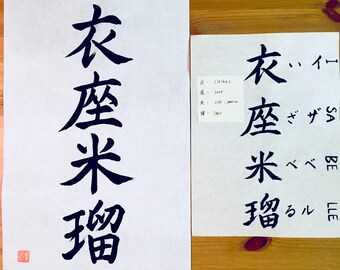 衣座米瑠
衣座米瑠
いざべる
イザベル
I SA BE LLE
衣 -
座 -
米 -
瑠 -